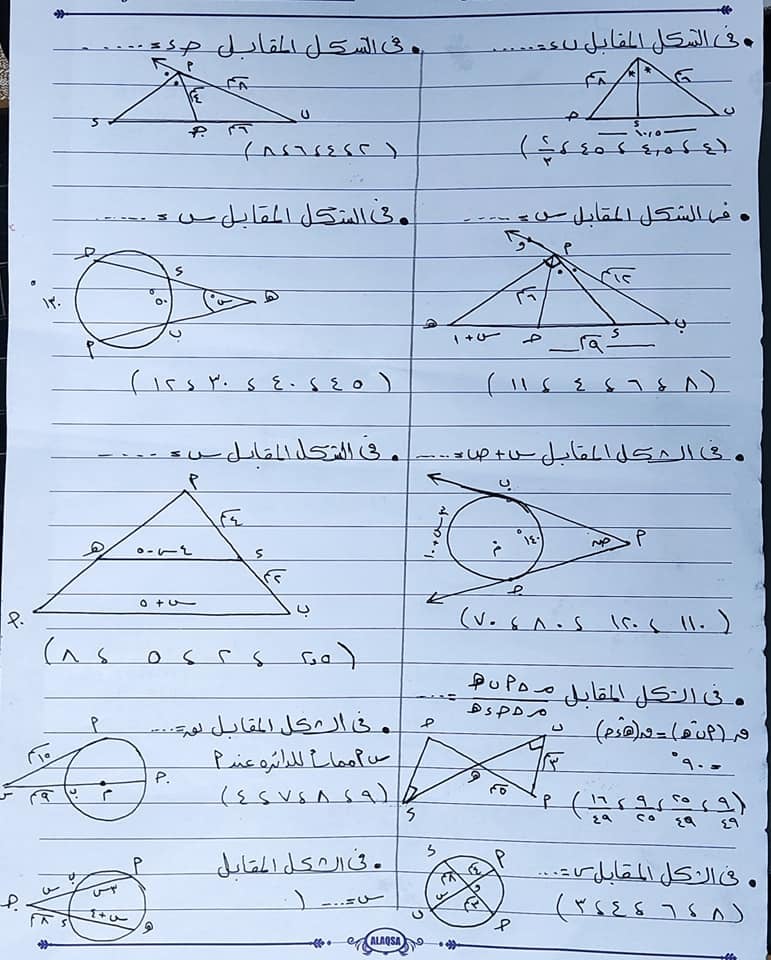 • فى الشكل المقابل ب ء = ......
٨سم ٦سم
ء
١٠,٥
(٤ ، ٤,٥ ، ٤٥ ، ٢/٣)
• فى الشكل المقابل حـ ء = ......
٨سم ٤سم
٦سم
(٢ ، ٤ ، ٦ ، ٨)
• فى الشكل المقابل س = ......
١٢سم ٦سم
س + ١ ٩سم
(٨ ، ٦ ، ٤ ، ١١)
• فى الشكل المقابل س = ......
١٣٠° ٥٠° س°
(٤٥ ، ٤٠ ، ٣٠ ، ١٢)
• فى الشكل المقابل س + ص = ......
٣س + ١٠ م ١٤٠° ص
(١١٠ ، ١٢٠ ، ٨٠ ، ٧٠)
• فى الشكل المقابل س = ......
٤سم
٤س - ٥
٢سم
س + ٥
(٢,٥ ، ٢ ، ٥ ، ٨)
• فى الشكل المقابل م Δ أ ب هـ / م Δ حـ ء هـ = ....
٩٠°
٣سم ٥سم
(٩/٤٩ ، ٢٥/٤٩ ، ٩/٢٥ ، ١٦/٤٩)
• فى الشكل المقابل نق = ....
س أ مماساً للدائره عند أ
١٥سم ٩سم م
(٩ ، ٨ ، ٧ ، ٤)
• فى الشكل المقابل س = ....
٨سم ٤سم س ٣سم
(٨ ، ٦ ، ٤ ، ٣)
• فى الشكل المقابل
س = .... (
س ٣س
٨سم س + ٤
ALAQSA